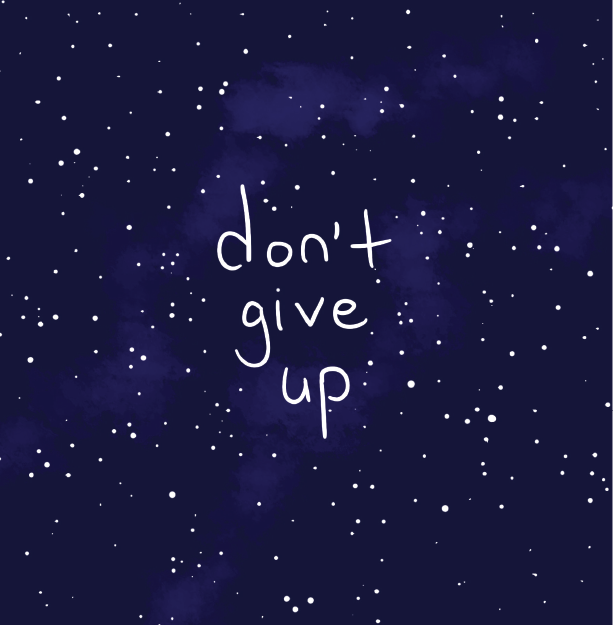 don't
give
up